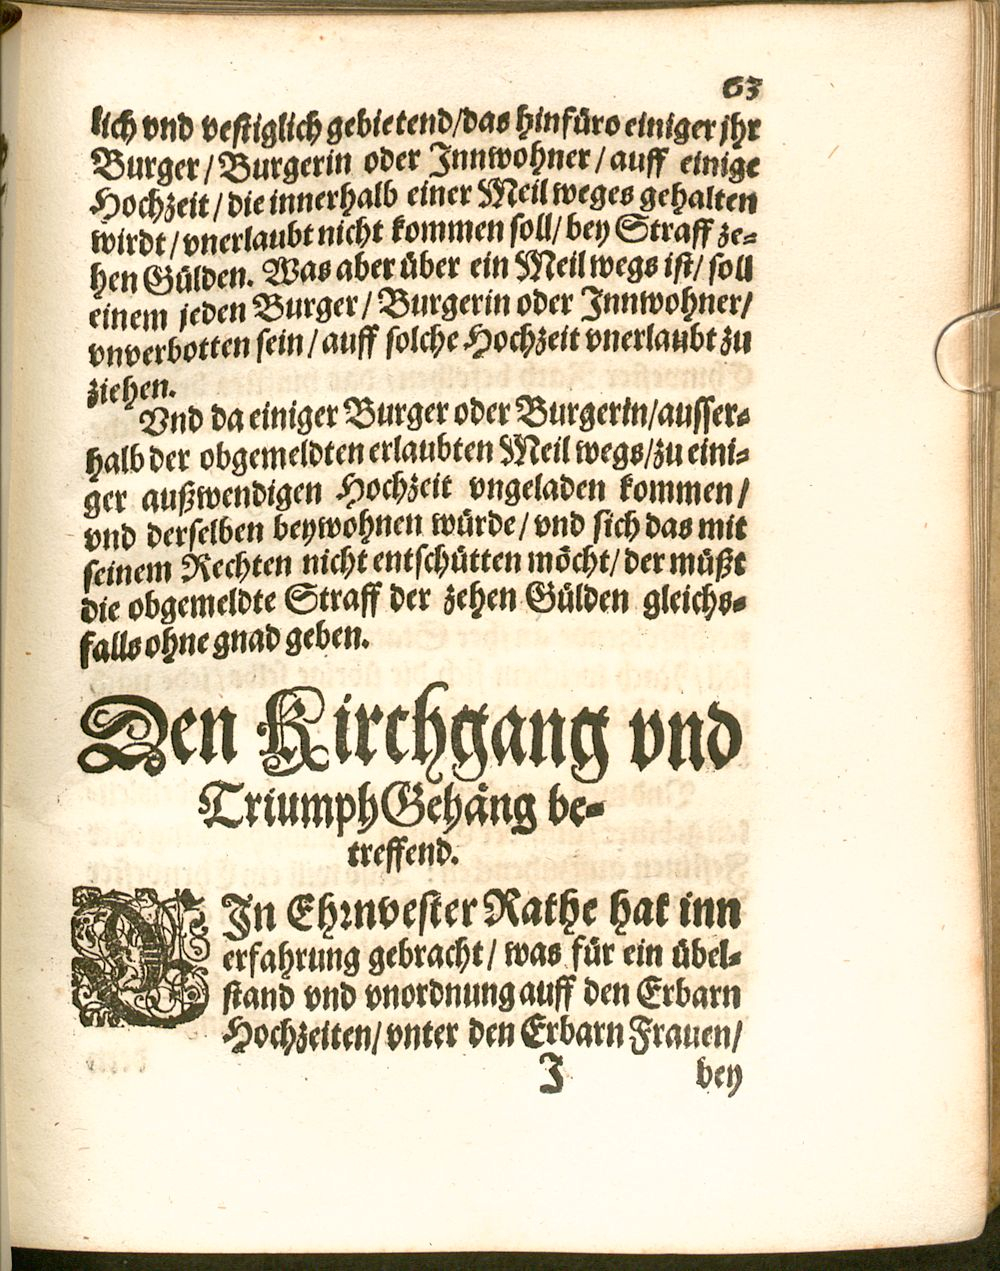 63
lich vnd vestiglich gebietend/das hinfüro einiger jhr
Burger/Burgerin oder Innwohner/auff einige
Hochzeit/die innerhalb einer Meil weges gehalten
wirdt/vnerlaubt nicht kommen soll/bey Straff ze-
hen Gülden. Was aber über ein Meil wegs ist/soll
einem jeden Burger/Burgerin oder Innwohner/
vnverbotten sein/auff solche Hochzeit vnerlaubt zu
ziehen.
Vnd da einiger Burger oder Burgerin/ausser-
halb der obgemeldten erlaubten Meil wegs/zu eini-
ger außwendigen Hochzeit vngeladen kommen/
vnd derselben beywohnen würde/vnd sich das mit
seinem Rechten nicht entschütten möcht/der müßt
die obgemeldte Straff der zehen Gülden gleichs-
falls ohne gnad geben.
Den Kirchgang vnd
Triumph Gehäng be-
treffend.
EIn Ehrnvester Rathe hat inn
erfahrung gebracht/was für ein übel-
stand vnd vnordnung auff den Erbarn
Hochzeiten/vnter den Erbarn Frauen/
J bey